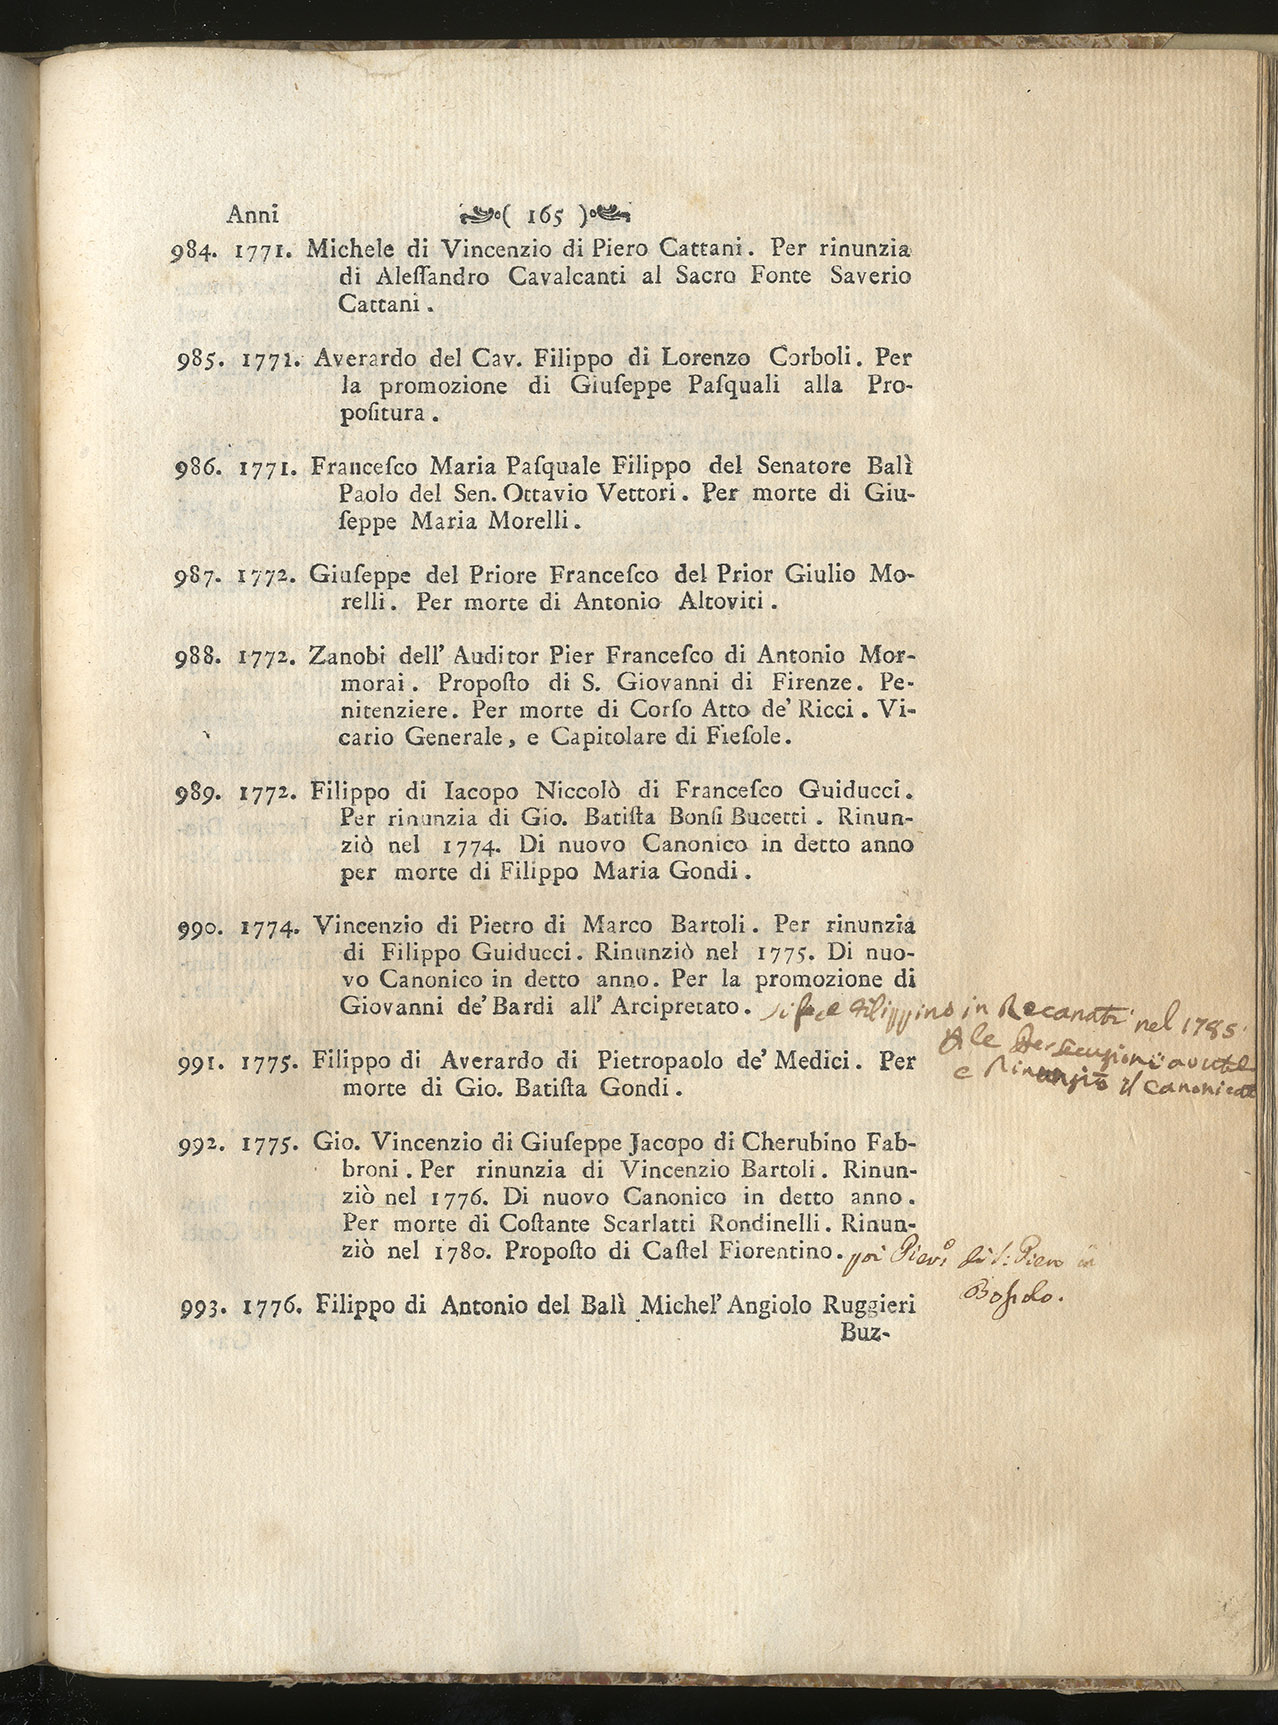 Anni ( 165 )
984. 1771. Michele di Vincenzio di Piero Cattani. Per rinunzia
di Aleſſandro Cavalcanti al Sacro Fonte Saverio
Cattani.
985. 1771. Averardo del Cav. Filippo di Lorenzo Corboli. Per
la promozione di Giuſeppe Paſquali alla Pro-
poſitura.
986. 1771. Franceſco Maria Paſquale Filippo del Senatore Balì
Paolo del Sen. Ottavio Vettori. Per morte di Giu-
ſeppe Maria Morelli.
987. 1772. Giuſeppe del Priore Franceſco del Prior Giulio Mo-
relli. Per morte di Antonio Altoviti.
988. 1772. Zanobi dell' Auditor Pier Franceſco di Antonio Mor-
morai. Propoſto di S. Giovanni di Firenze. Pe-
nitenziere. Per morte di Corſo Atto de' Ricci. Vi-
cario Generale, e Capitolare di Fieſole.
989. 1772. Filippo di Iacopo Niccolò di Franceſco Guiducci.
Per rinunzia di Gio. Batiſta Bonſi Bucetti. Rinun-
ziò nel 1774. Di nuovo Canonico in detto anno
per morte di Filippo Maria Gondi.
990. 1774. Vincenzio di Pietro di Marco Bartoli. Per rinunzia
di Filippo Guiducci. Rinunziò nel 1775. Di nuo-
vo Canonico in detto anno. Per la promozione di
Giovanni de' Bardi all' Arcipretato. si fece Filippino in Recanati nel 1785
le Persecuzioni avute
e Rinunziò il Canonicat
991. 1775. Filippo di Averardo di Pietropaolo de' Medici. Per
morte di Gio. Batiſta Gondi.
992. 1775. Gio. Vincenzio di Giuſeppe Jacopo di Cherubino Fab-
broni. Per rinunzia di Vincenzio Bartoli. Rinun-
ziò nel 1776. Di nuovo Canonico in detto anno.
Per morte di Coſtante Scarlatti Rondinelli. Rinun-
ziò nel 1780. Propoſto di Caſtel Fiorentino. poi Piev.º di S: Piero in
Boſſolo.
993. 1776. Filippo di Antonio del Balì Michel' Angiolo Ruggieri
Buz-